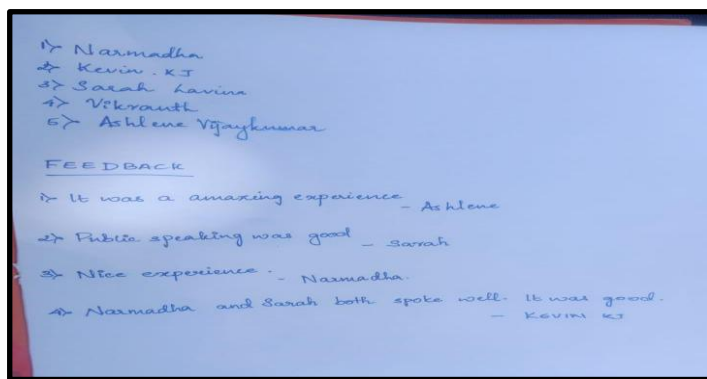 1) Narmadha
2) Kevin. KJ
3) Sarah Lavina
4) Vikranth
5) Ashlene Vijaykumar
FEEDBACK
1) It was a amazing experience - Ashlene
2) Public speaking was good - Sarah
3) Nice experience. - Narmadha.
4) Narmadha and Sarah both spoke well. It was good.
- KEVIN KJ